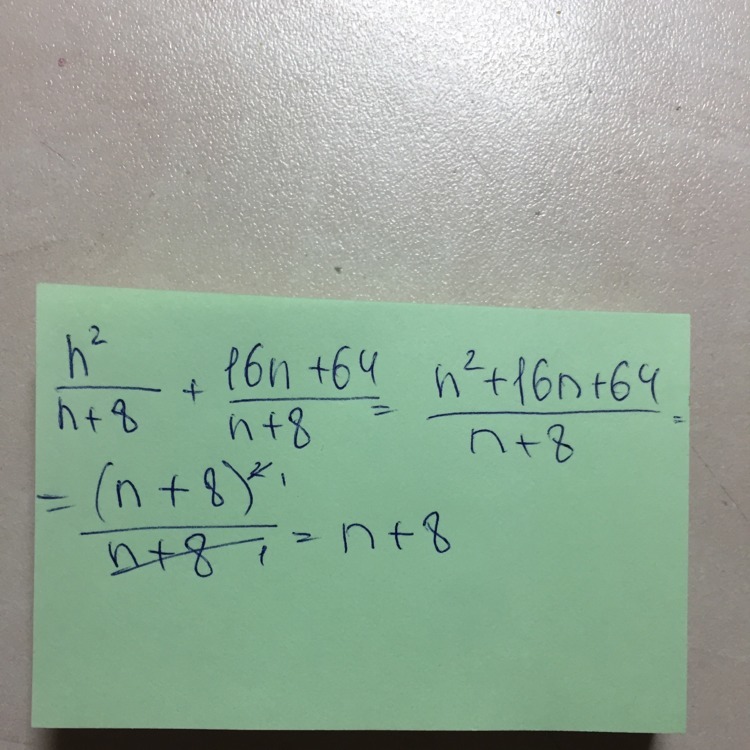 n²/(n+8) + (16n+64)/(n+8) = (n²+16n+64)/(n+8) =
= (n+8)²/(n+8) = n+8